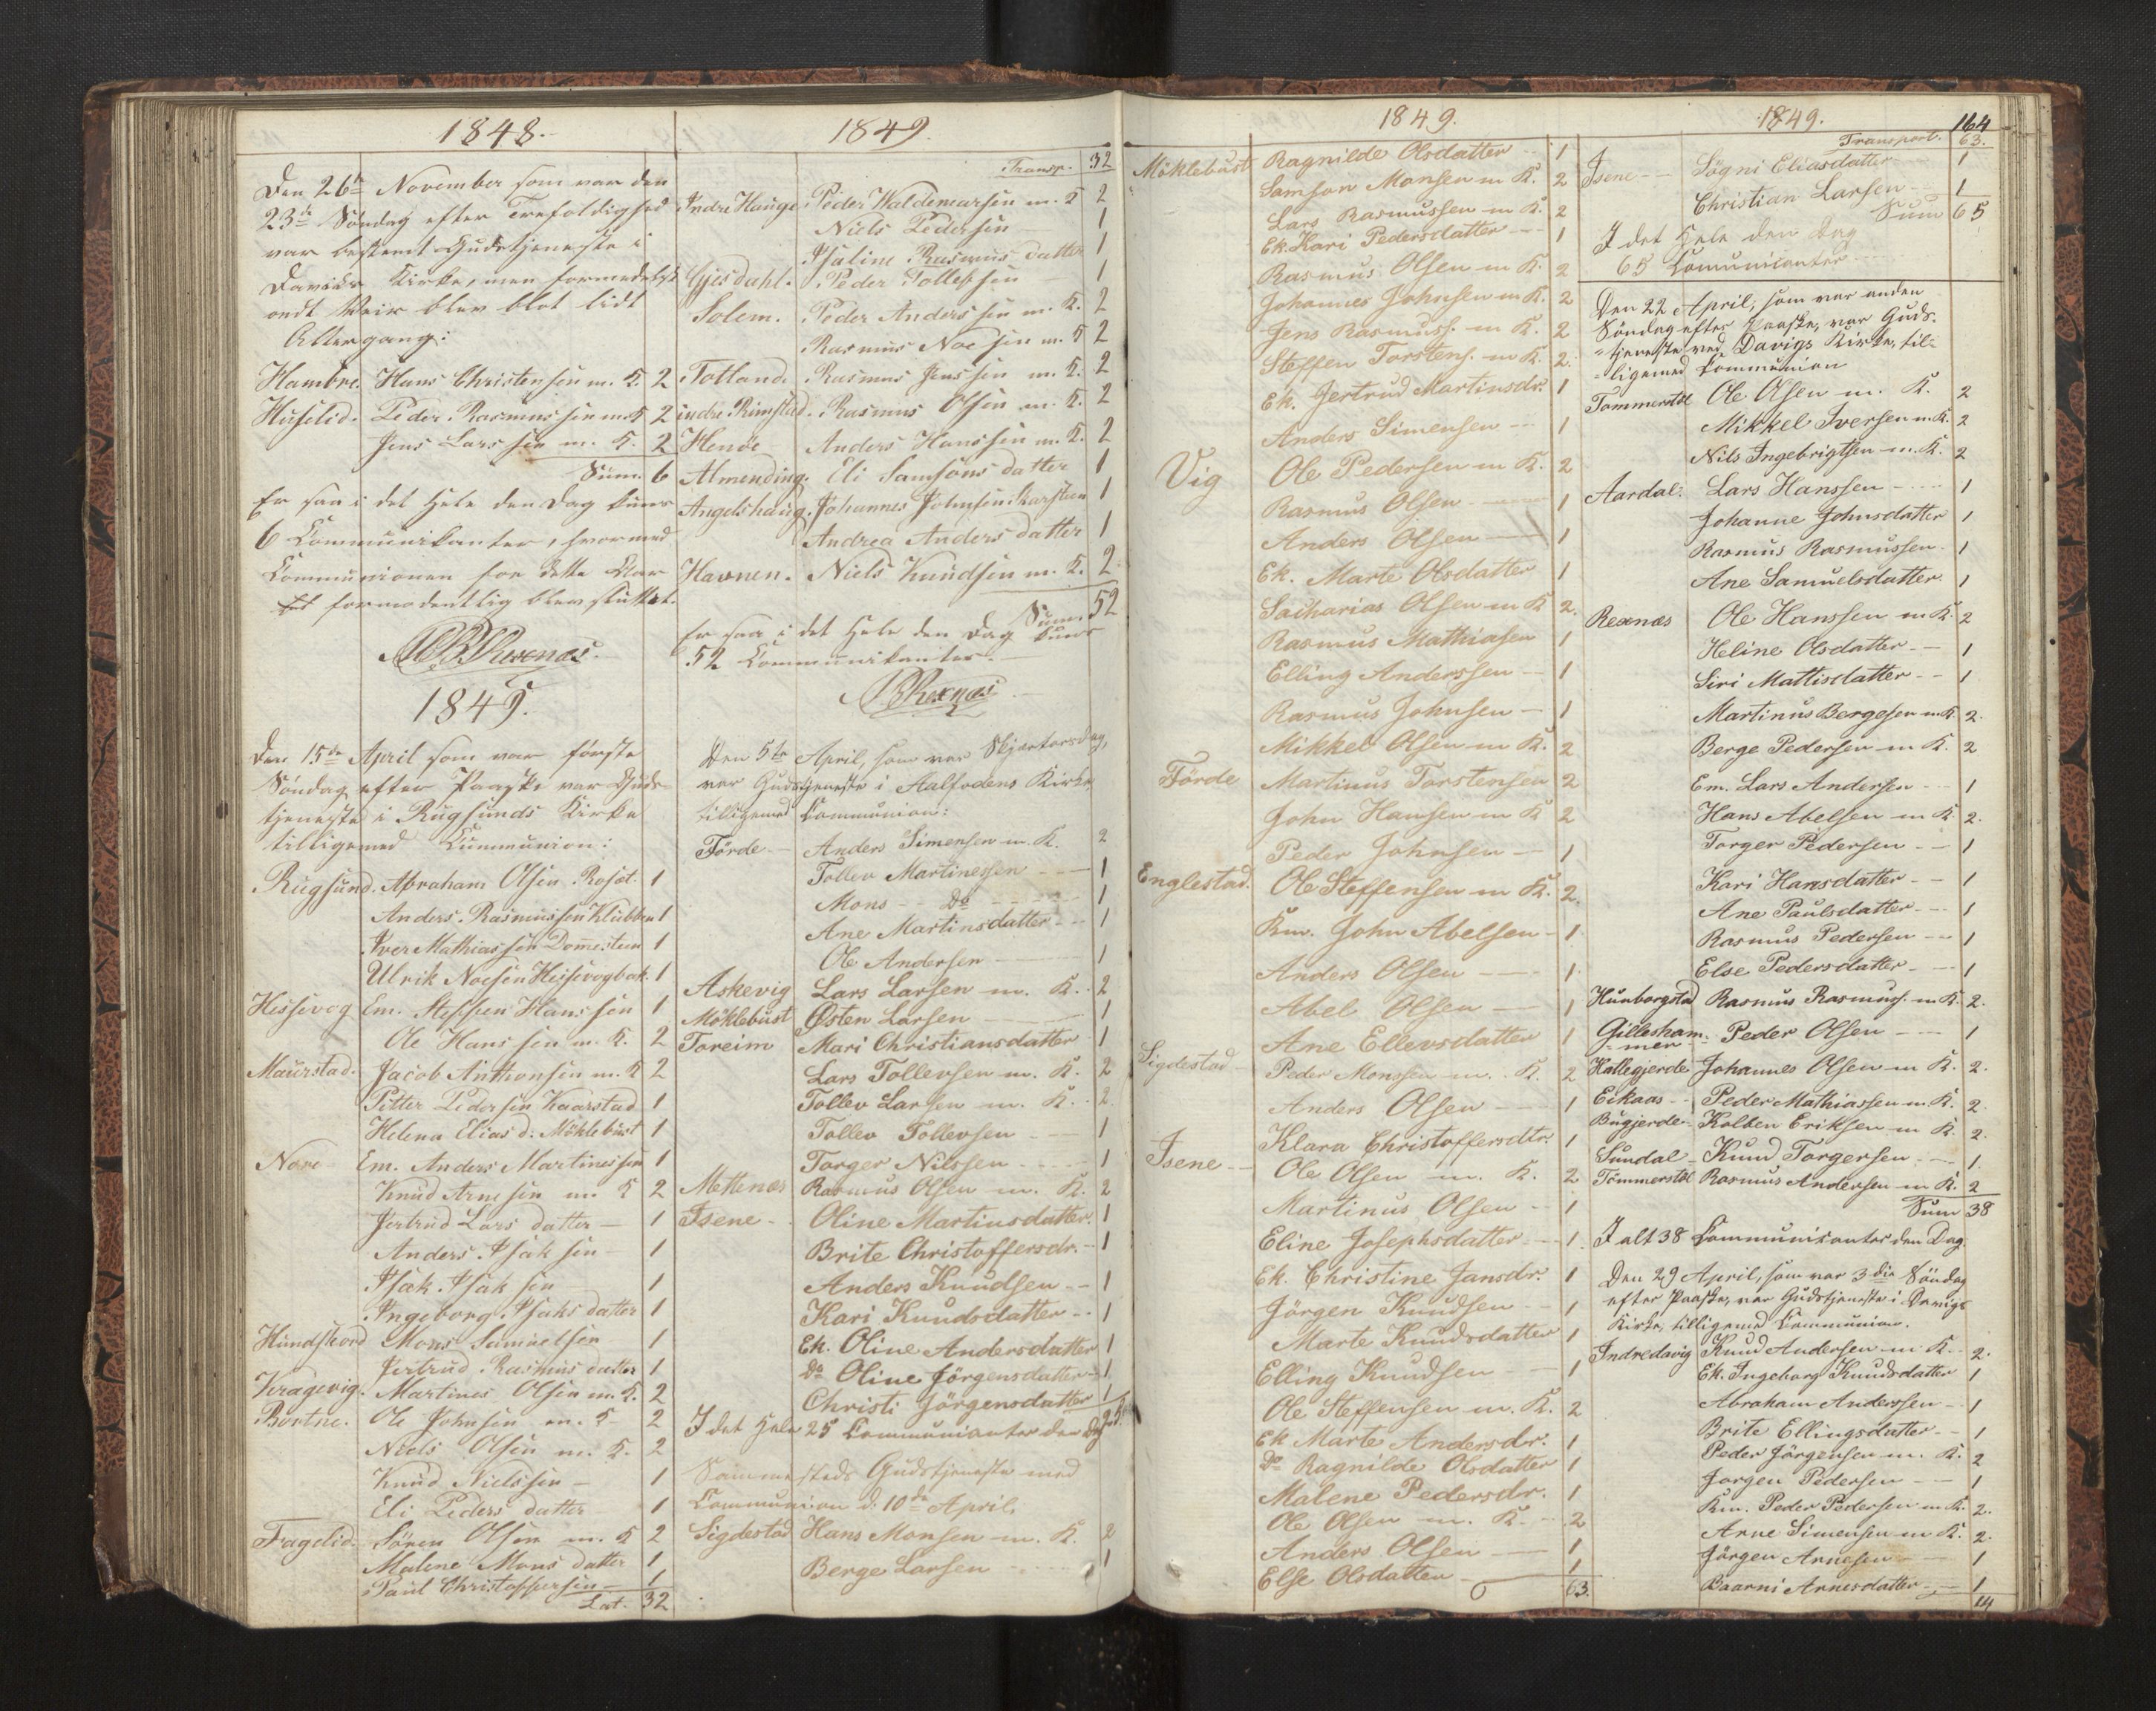 1848.
Den 26de November som var den
23de Søndag efter Trefoldighed
var bestemt Gudstjeneste i
Davigs Kirke, men formedelst
ondt Veir blev blot lidt
Altergang:
Hambre. Hans Christensen m. K. 2
Huselid. Peder Rasmussen m. K 2
Jens Larssen m. K. 2
Sum. 6
Er saa i det Hele den Dag kuns
6 Communikanter, hvormed
Communionen for dette Aar
formodentlig blev sluttet.
Rexnæs.
1849.
Den 15de April som var første
Søndag efter Paaske var Guds-
tjeneste i Rugsunds Kirke
tilligemed Kummunion:
Rugsund. Abraham Olsen Rosæt. 1
Anders Rasmussen Klubben 1
Iver Mathiassen Domesteen 1
Ulrik Noesen Hessevogbak. 1
Hessevog Em. Steffen Hanssen 1
Ole Hanssen m. K. 2
Maurstad. Jacob Anthonsen m. K 2
Petter Pedersen Kaarstad 1
Helena Elias d. Möklebust 1
Nave Em. Anders Martinessen 1
Knud Arnesen m. K 2
Jertrud Lars datter – 1
Anders Isaksen 1
Isak Isaksen 1
Ingeborg Isaks datter 1
Hundskord Mons Samuelsen 1
Jertrud Rasmus datter 1
Kragevig. Martines Olsen m. K. 2
Bortne. Ole Johnsen m. K 2
Niels Olsen m. K. 2
Knud Nielssen – 1
Eli Peders datter 1
Fragelid. Sören Olsen m. K 2
Malene Mons datter 1
Paul Christoffersen – 1
Lat. 32
1849.
Transp. 32
Indre Hauge. Peder Waldemarsen m. K 2
Niels Pedersen 1
Isaline Rasmus datter 1
Gjesdahl. Peder Tollefsen 1
Solem. Peder Anderssen m. K. 2
Rasmus Noesen m. K 2
Totland. Rasmus Jenssen m. K. 2
indre Rimstad. Rasmus Olsen m. K. 2
Henöe Anders Hanssen m. K. 2
Almending. Eli Samsons datter 1
Angelshaug. Johannes Johnsen Karsteen 1
Andrea Anders datter 1
Havnen. Niels Knudsen m. K. 2
Sum. 52
Er saa i det Hele den Dag kuns
52 Communikanter. –
Rexnæs
Den 5te April, som var Skjertorsdag,
var Gudstjeneste i Aalfodens Kirke
tilligemed Communion:
Förde – Anders Simensen m. K. 2
Tollev Martinessen – 1
Mons – Do – 1
Ane Martinsdatter – 1
Ole Andersen 1
Askevig Lars Larsen m. K. 2
Möklebust Østen Larsen 1
Toreim Mari Christiansdatter 1
Lars Tollevsen m. K. 2
Tollev Larsen m. K. 2
Tollev Tollevsen – 1
Torger Nilssen – 1
Mettenæs Rasmus Olsen m. K. 2
Isene – Oline Martinsdatter. 1
Brite Christoffersdr. – 1
Anders Knudsen – 1
Kari Knudsdatter – 1
Ek. Oline Andersdatter 1
Do Oline Jörgensdatter – 1
Christi Jörgensdatter 1
I det Hele 25 Communicanter den Dag 25.
Sammesteds Gudstjeneste med
Communion d: 10de April.
Sigdestad Hans Monsen m. K. 2
Berge Larsen 1
1849.
Möklebust Ragnilde Olsdatter – 1
Samson Monsen m K. 2
Lars Rasmussen m K. 2
Ek. Kari Pedersdatter – 1
Rasmus Olsen m K. 2
Johannes Johnsen m K. 2
Jens Rasmuss. m K. 2
Steffen Torstens. m K. 2.
Ek. Jertrud Martinsdr. 1
Anders Simensen – 1
Vig Ole Pedersen m K. 2
Rasmus Olsen 1
Anders Olsen 1
Ek. Marte Olsdatter 1
Sacharias Olsen m K 2.
Rasmus Mathiasen 1
Elling Anderssen – 1
Rasmus Johnsen – 1
Mikkel Olsen m K. 2
Förde Martinus Torstensen 2
John Hansen m K 2
Peder Johnsen – 1
Englestad. Ole Steffensen m K. 2.
Km. John Abelsen – 1
Anders Olsen – 1
Abel Olsen 1
Ane Ellevsdatter 1
Sigdestad – Peder Monssen m. K. 2
Anders Olsen 1
Klara Christoffersdtr. 1
Isene – Ole Olsen m. K. 2
Martinus Olsen – 1
Eline Josephsdatter – 1.
Ek. Christine Jansdr. 1
Jörgen Knudsen – 1
Marte Knudsdatter 1
Elling Knudsen – 1
Ole Steffensen m. K. 2
Ek Marte Andersdr. 1
Do Ragnilde Olsdatter 1
Malene Pedersdr. 1
Ole Olsen m. K. 2
Anders Olsen – 1
Else Olsdatter – 1
63.
1849.
164
Transport. 63.
Isene – Sögni Eliasdatter 1
Christian Larsen – 1
Sum 65
I det Hele den Dag
65 Comunicanter
Den 22 April, som var anden
Söndag efter Paaske, var Guds-
tjeneste ved Davigs Kirke, til-
ligemed Kommunion
Tommerstöl Ole Olsen m. K. 2
Mikkel Iversen m. K. 2
Nils Ingebrigtsen m. K. 2
Aardal. Lars Hanssen – 1
Johanne Johnsdatter 1
Rasmus Rasmussen. 1
Ane Samuelsdatter. 1
Rexnæs Ole Hanssen m K. 2
Heline Olsdatter – 1
Siri Mattisdatter – 1
Martinus Bergesen m K. 2.
Berge Pedersen m K. 2
Em. Lars Andersen – 1
Hans Abelsen m K. 2.
Torger Pedersen – 1
Kari Hansdatter – 1
Ane Paulsdatter – 1
Rasmus Pedersen – 1
Else Pedersdatter – 1
Hunborgstad Rasmus Rasmuss. m K. 2.
Gillesham-
mer Peder Olsen – 1
Hallegjerde Johannes Olsen m K. 2.
Eikaas – Peder Mathiassen m K. 2
Bugjerde – Kolben Eriksen m K. 2.
Sundal – Knud Torgersen – 1.
Tömmerstöl Rasmus Andersen m K. 2
Sum 38
I alt 38 Communicanter den Dag.
Den 29 April, som var 3die Söndag
efter Paaske, var Gudstjeneste i Davigs
Kirke, tilligemed Communion.
Indredavig Knud Andersen m K. 2.
Ek. Ingeborg Knudsdatter 1
Abraham Anderssen – 1
Brite Ellingsdatter – 1
Peder Jörgensen m. K. 2
Jorgen Pedersen – 1
Km. Peder Pedersen m K. 2.
Arne Simensen m K. 2.
Jörgen Arnesen – 1
Baarni Arnesdatter – 1
14